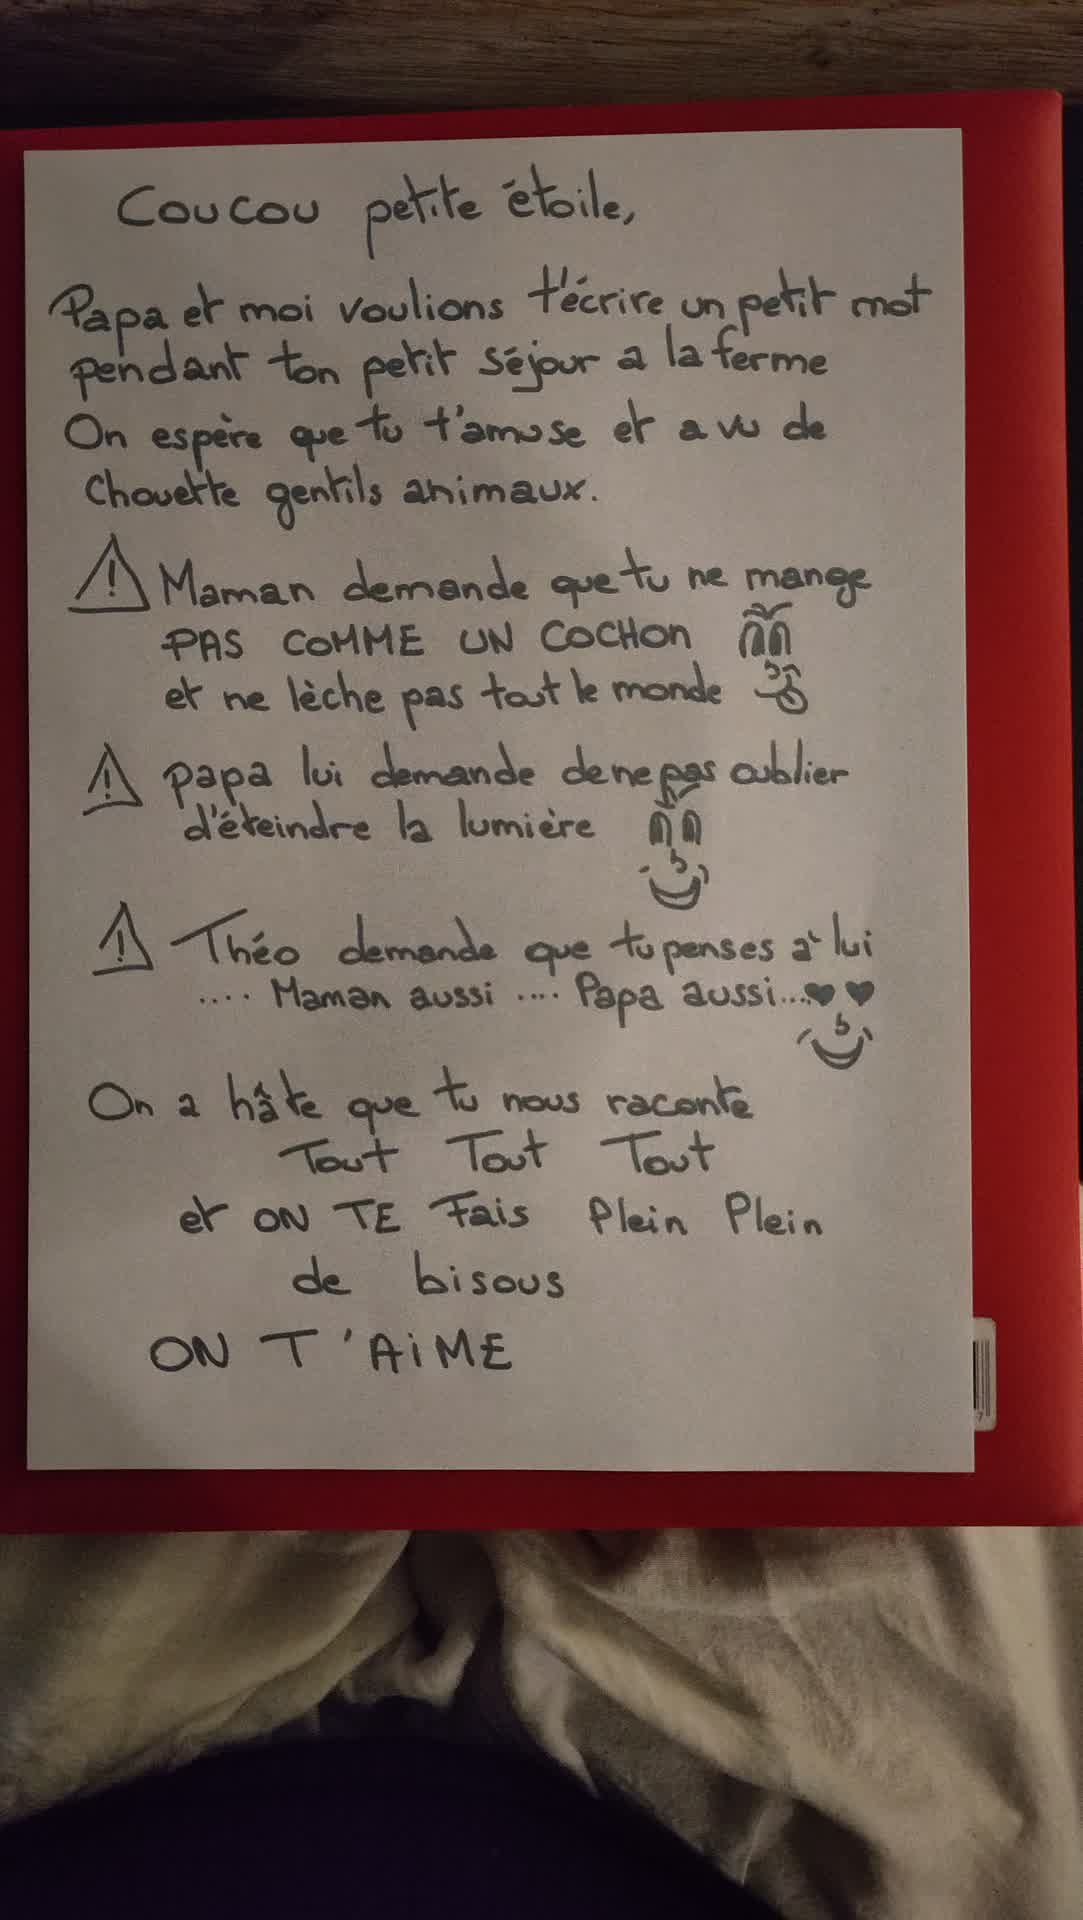 Coucou petite étoile,
Papa et moi voulions t'écrire un petit mot
pendant ton petit séjour a la ferme
On espère que tu t'amuse et a vu de
Chouette gentils animaux.
⚠ Maman demande que tu ne mange
PAS COMME UN COCHON
et ne lèche pas tout le monde
⚠ papa lui demande de ne pas oublier
d'éteindre la lumière
⚠ Théo demande que tu penses à lui
.... Maman aussi .... Papa aussi....♥♥
On a hâte que tu nous raconte
Tout Tout Tout
et ON TE Fais Plein Plein
de bisous
ON T'AiME
7